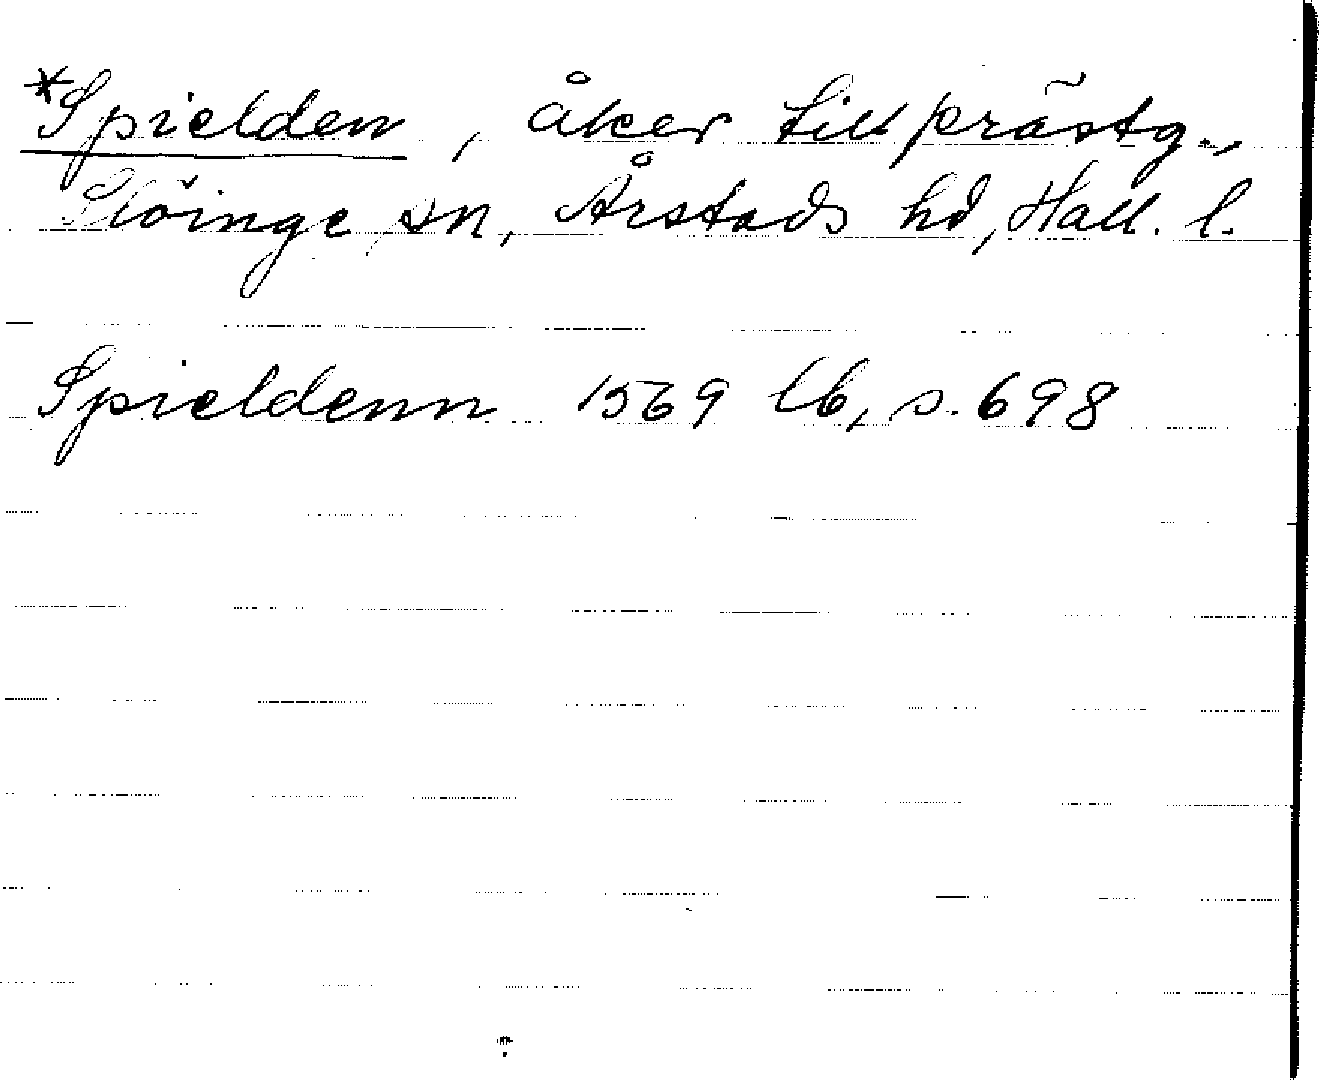 *Spielden, åker till prästg.,
Slöinge sn, Årstads hd, Hall. l.
Spieldenn 1569 lb, s. 698